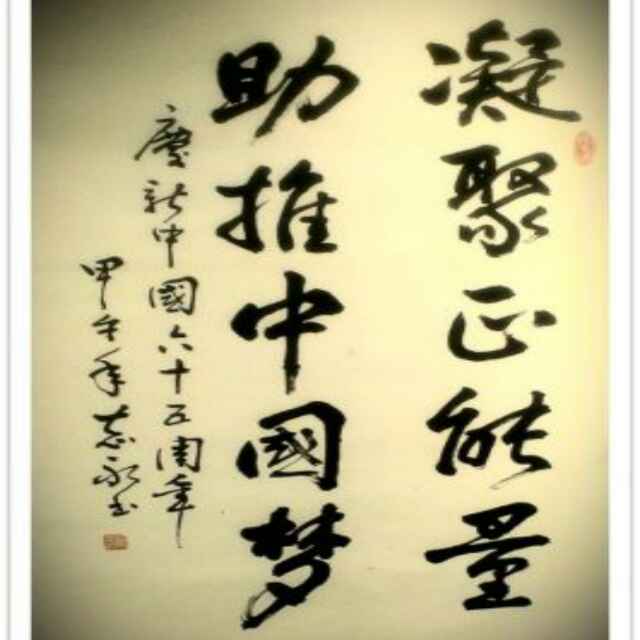 凝聚正能量
助推中國梦
慶新中國六十五周年
甲午年志永书